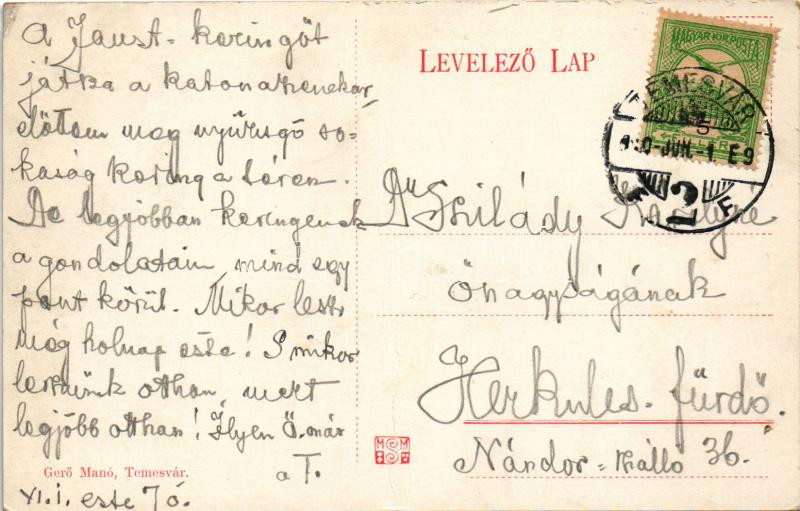 A Faust-keringőt
játsza a katonazenekar,
előttem meg nyüzsgő so-
kaság kering a téren.
De legjobban keringenek
a gondolataim, mind egy
pont körül. Mikor lesz
még holnap este! S mikor
leszünk otthon, mert
legjobb otthon! Ilyen Ö. már
a T.
VI.1. este 7ó.
Gerő Manó, Temesvár.
LEVELEZŐ LAP
MAGYAR KIR. POSTA
5
FILLÉR
TEMESVÁR
910-JUN.-1. E9
Dr Szilády
őnagyságának
Herkules-fürdő.
Nándor-szálló 36.
MSM